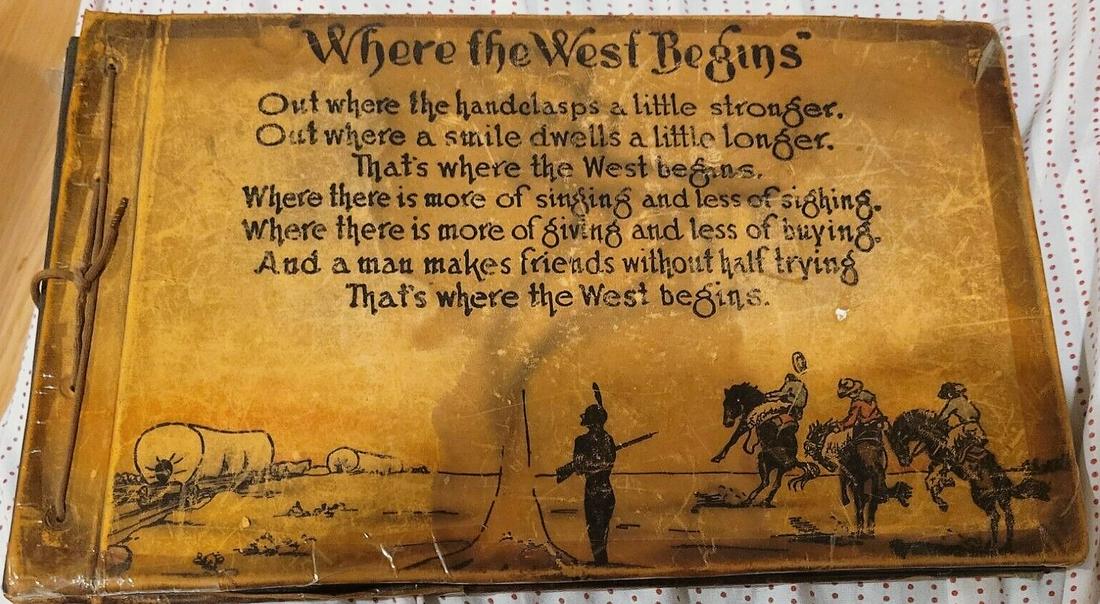 "Where the West Begins"
Out where the handclasps a little stronger.
Out where a smile dwells a little longer.
That's where the West begins.
Where there is more of singing and less of sighing.
Where there is more of giving and less of buying.
And a man makes friends without half trying
That's where the West begins.